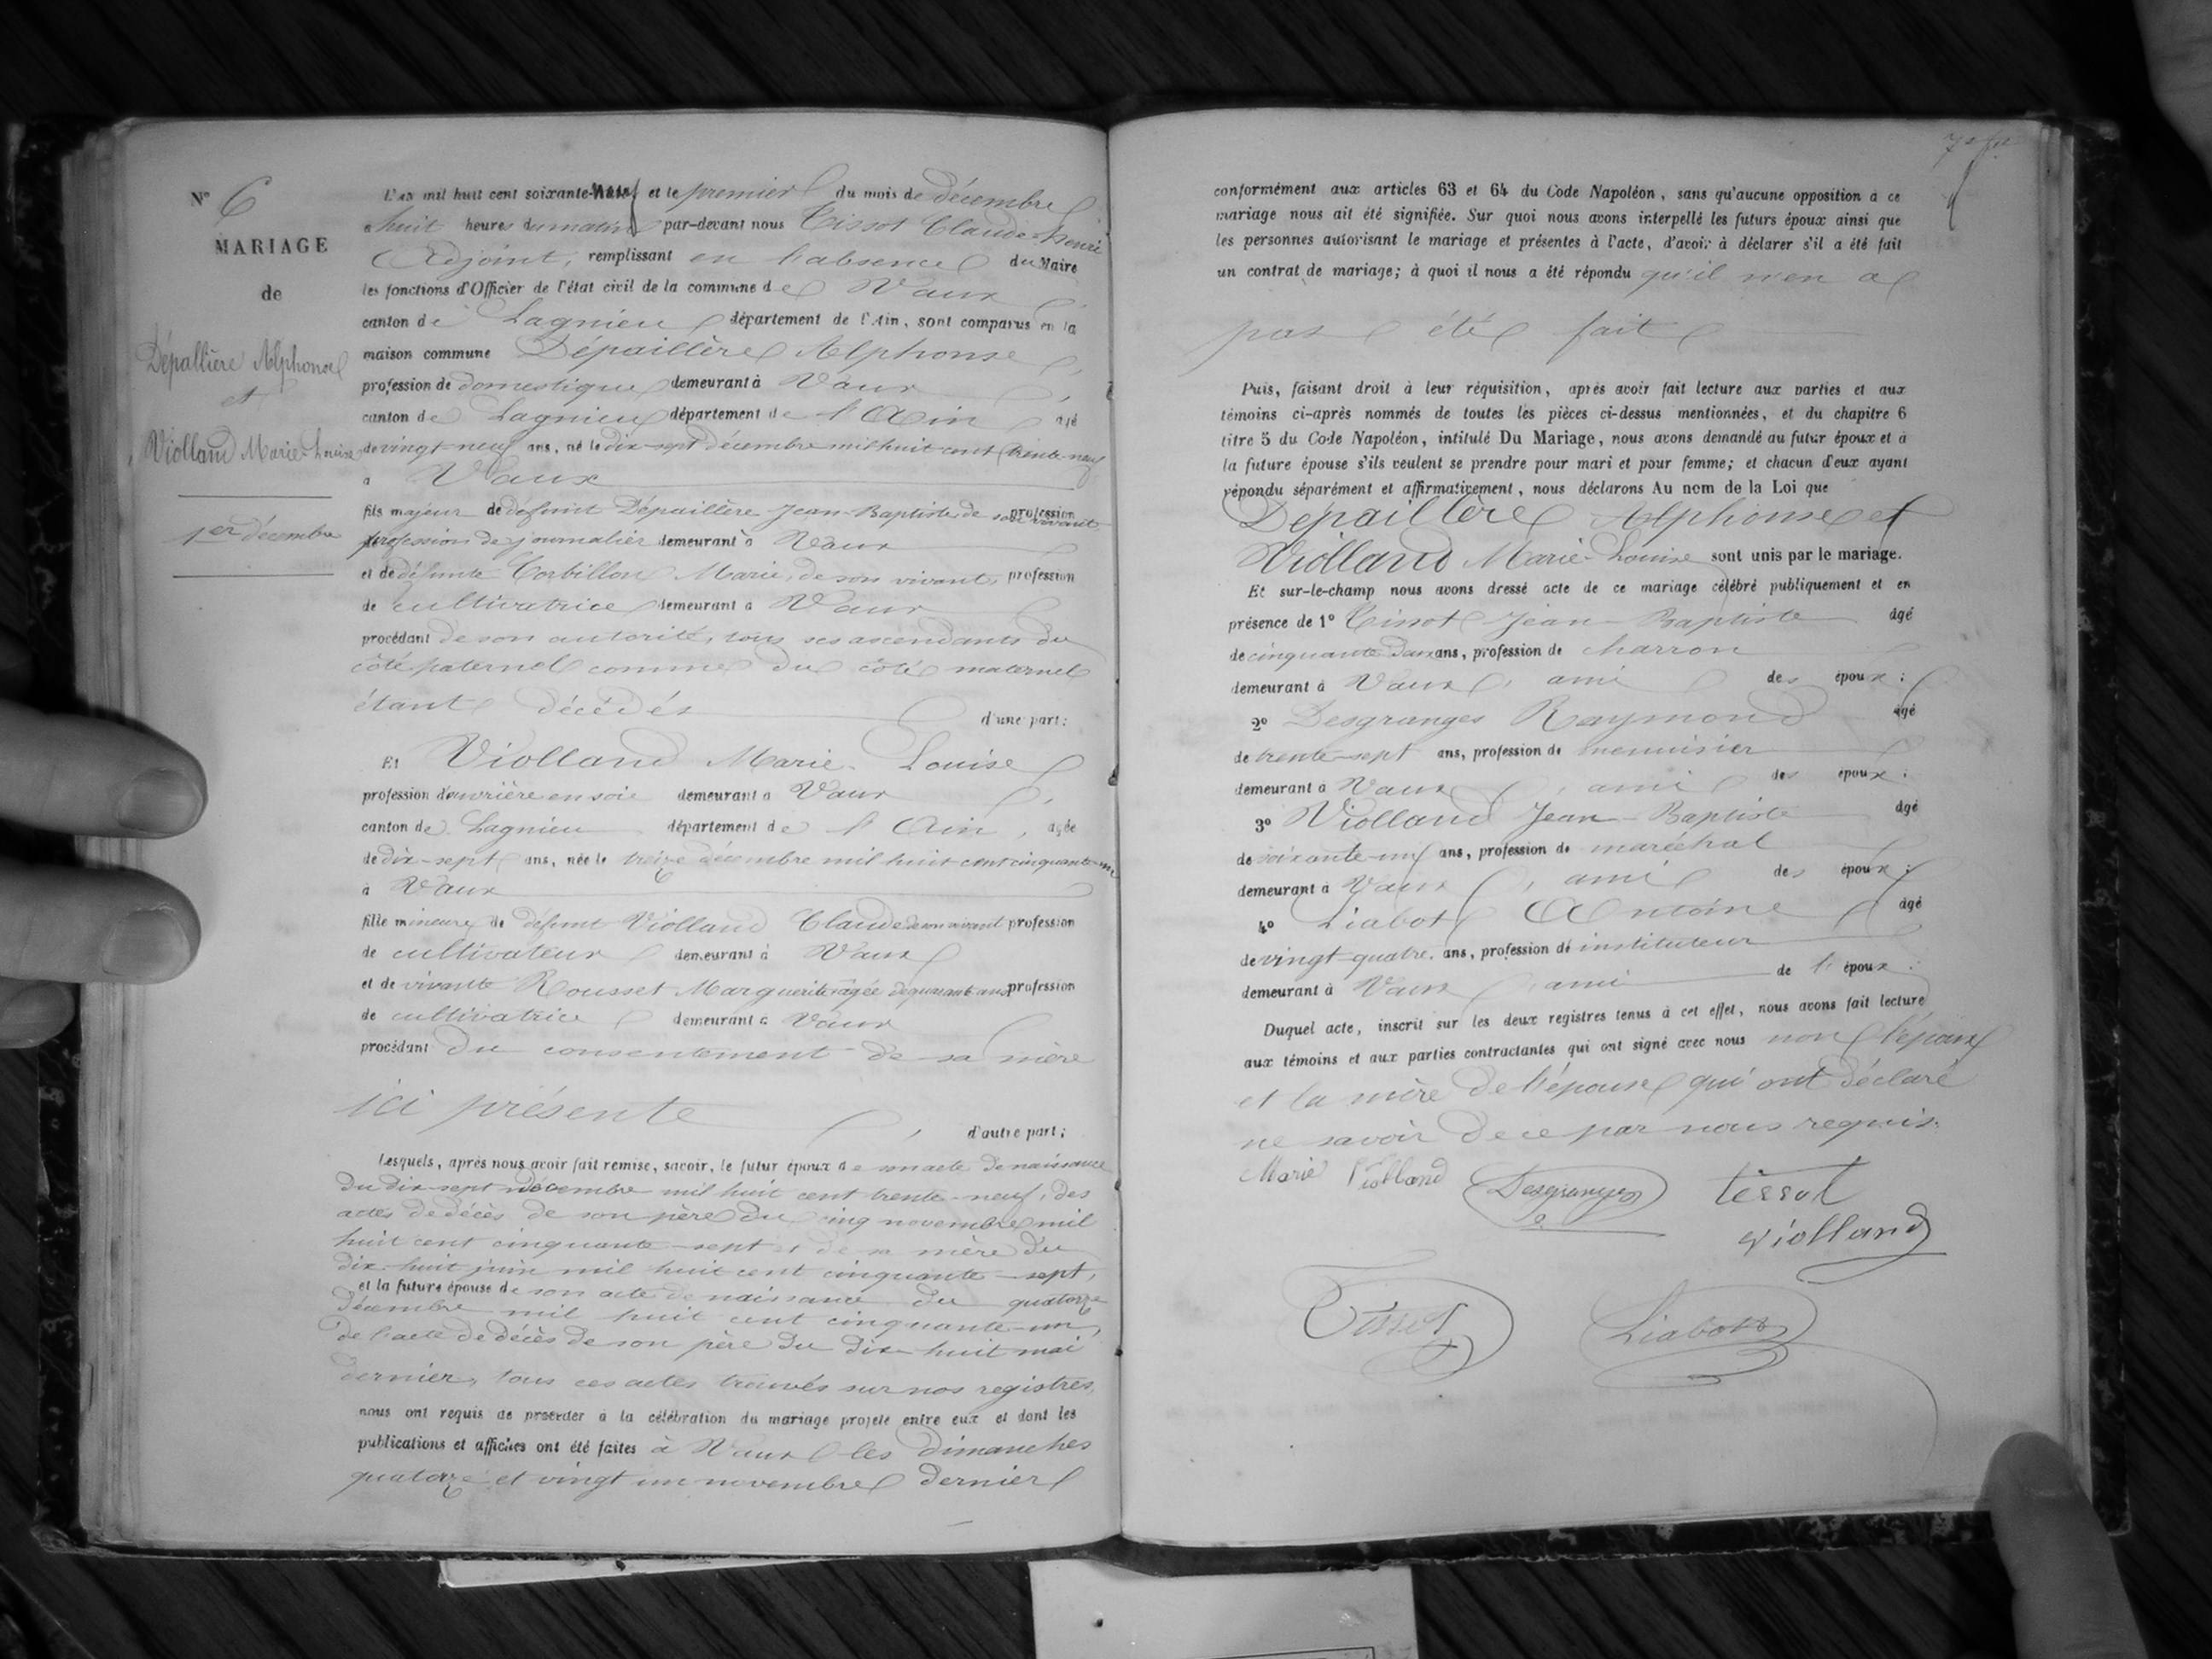 N° 6
MARIAGE
de
Dépallière Alphonse
et
Violland Marie-Louise
1er décembre
L'an mil huit cent soixante-neuf et le premier du mois de décembre
à huit heures du matin par-devant nous Tissot Claude-Henri
Adjoint, remplissant en l'absence du Maire
les fonctions d'Officier de l'état civil de la commune de Vaux
canton de Lagnieu département de l'Ain, sont comparus en la
maison commune Dépaillère Alphonse
profession de domestique demeurant à Vaux,
canton de Lagnieu département de l'Ain âgé
de vingt-neuf ans, né le dix-sept décembre mil huit cent trente-neuf
à Vaux
fils majeur de défunt Dépaillère Jean-Baptiste de son vivant profession
profession de journalier demeurant à Vaux
et de défunte Corbillon Marie, de son vivant, profession
de cultivatrice demeurant à Vaux
procédant de son autorité, tous ses ascendants du
côté paternel comme du côté maternel
étant décédés d'une part;
Et Violland Marie-Louise
profession d'ouvrière en soie demeurant à Vaux,
canton de Lagnieu département de l'Ain, âgée
de dix-sept ans, née le treize décembre mil huit cent cinquante-un
à Vaux
fille mineure de défunt Violland Claude de son vivant profession
de cultivateur demeurant à Vaux
et de vivante Rousset Marguerite âgée de quarante ans profession
de cultivatrice demeurant à Vaux
procédant du consentement de sa mère
ici présente, d'autre part;
Lesquels, après nous avoir fait remise, savoir, le futur époux de son acte de naissance
du dix-sept décembre mil huit cent trente-neuf, des
actes de décès de son père du cinq novembre mil
huit cent cinquante-sept et de sa mère du
dix-huit juin mil huit cent cinquante-sept,
et la future épouse de son acte de naissance du quatorze
décembre mil huit cent cinquante-un,
de l'acte de décès de son père du dix-huit mai
dernier, tous ces actes trouvés sur nos registres,
nous ont requis de procéder à la célébration du mariage projeté entre eux et dont les
publications et affiches ont été faites à Vaux les dimanches
quatorze et vingt un novembre dernier
conformément aux articles 63 et 64 du Code Napoléon, sans qu'aucune opposition à ce
mariage nous ait été signifiée. Sur quoi nous avons interpellé les futurs époux ainsi que
les personnes autorisant le mariage et présentes à l'acte, d'avoir à déclarer s'il a été fait
un contrat de mariage; à quoi il nous a été répondu qu'il n'en a
pas été fait
Puis, faisant droit à leur réquisition, après avoir fait lecture aux parties et aux
témoins ci-après nommés de toutes les pièces ci-dessus mentionnées, et du chapitre 6
titre 5 du Code Napoléon, intitulé Du Mariage, nous avons demandé au futur époux et à
la future épouse s'ils veulent se prendre pour mari et pour femme; et chacun d'eux ayant
répondu séparément et affirmativement, nous déclarons Au nom de la Loi que
Dépaillère Alphonse et
Violland Marie-Louise sont unis par le mariage.
Et sur-le-champ nous avons dressé acte de ce mariage célébré publiquement et en
présence de 1° Tissot Jean-Baptiste âgé
de cinquante ans, profession de charron
demeurant à Vaux, ami des époux;
2° Desgranges Raymond âgé
de trente-sept ans, profession de menuisier
demeurant à Vaux, ami des époux;
3° Violland Jean-Baptiste âgé
de soixante-un ans, profession de maréchal
demeurant à Vaux, ami des époux;
4° Liabot Antoine âgé
de vingt-quatre ans, profession de instituteur
demeurant à Vaux, ami de l'époux.
Duquel acte, inscrit sur les deux registres tenus à cet effet, nous avons fait lecture
aux témoins et aux parties contractantes qui ont signé avec nous non l'époux
et la mère de l'épouse qui ont déclaré
ne savoir de ce par nous requis.
Marie Violland Desgranges tissot
violland
Tissot Liabot